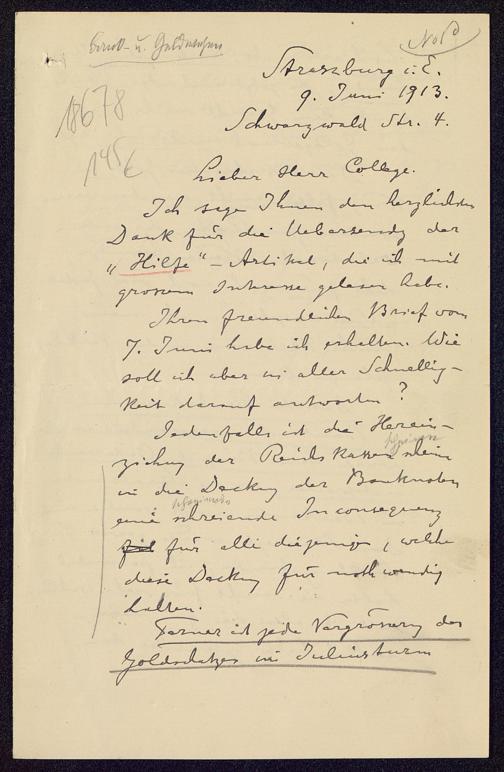 Geld- u. Goldwesen
No 12
18678
145 €
Straszburg i. E.
9. Juni 1913.
Schwarzwald Str. 4.
Lieber Herr College.
Ich sage Ihnen den herzlichsten
Dank für die Uebersendg der
„Hilfe" – Artikel, die ich mit
grossem Interesse gelesen habe.
Ihren freundlichen Brief vom
7. Juni habe ich erhalten. Wie
soll ich aber in aller Schnellig-
keit darauf antworten?
Jedenfalls ist die Herein-
ziehung der Reichskassenscheine
in die Deckg der Banknoten
eine schreiende Inconsequenz
für alle diejenigen, welche
diese Deckg für nothwendig
halten.
Ferner ist jede Vergrösserg des
Goldschatzes im Juliusturm